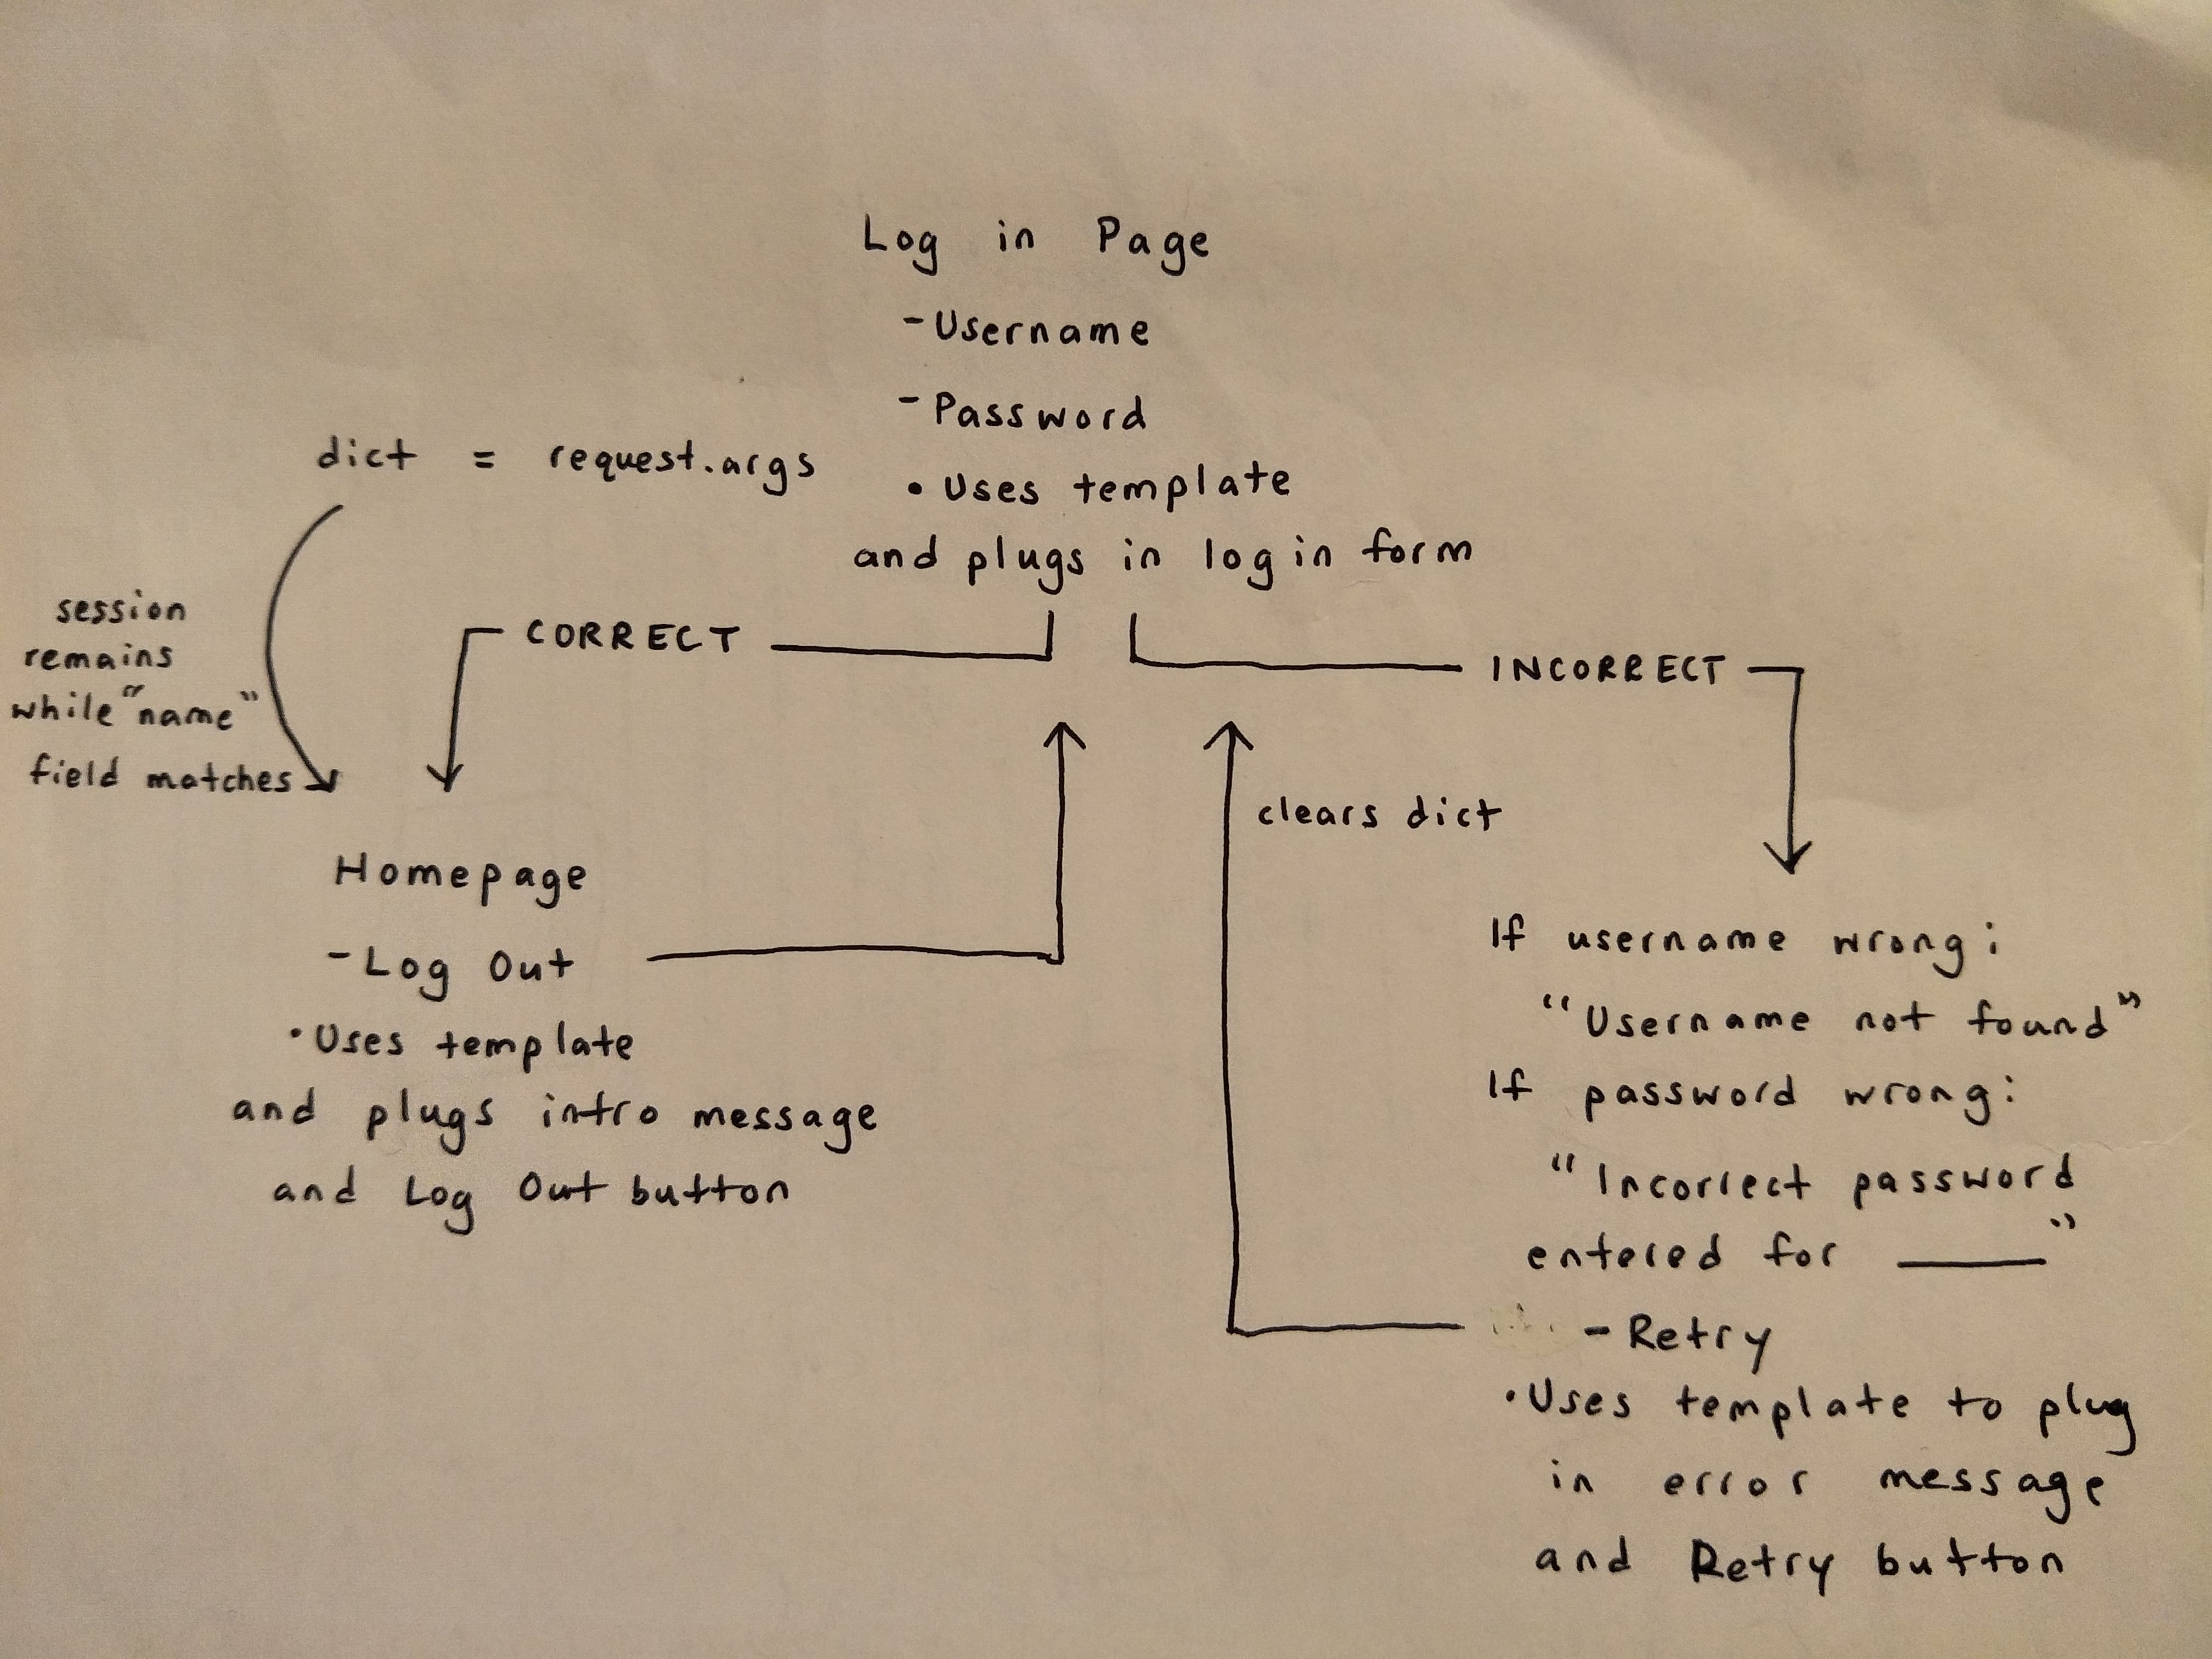 Log in Page
- Username
- Password
• Uses template
and plugs in log in form
dict = request.args
session
remains
while "name"
field matches
CORRECT
INCORRECT
Homepage
- Log Out
• Uses template
and plugs intro message
and Log Out button
clears dict
If username wrong:
"Username not found"
If password wrong:
"Incorrect password
entered for ____"
- Retry
• Uses template to plug
in error message
and Retry button